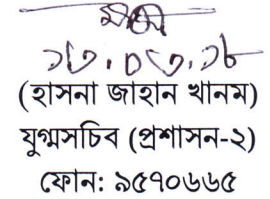 ১৩.০৩.১৮
(হাসনা জাহান খানম)
যুগ্মসচিব (প্রশাসন-২)
ফোন: ৯৫৭০৬৬৫